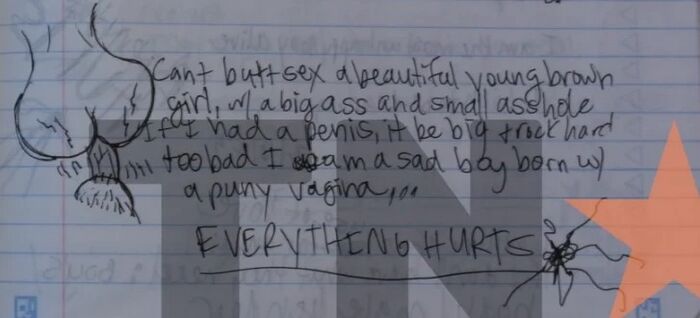 Cant buttsex a beautiful young brown
girl, w/ a big ass and small asshole
If I had a penis, it be big + rock hard
too bad I am a sad boy born w/
a puny vagina...
EVERYTHING HURTS
TN